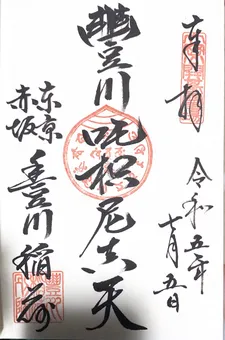 奉拝
令和五年
十一月五日
豊川吒枳尼真天
東京
赤坂
豊川稲荷